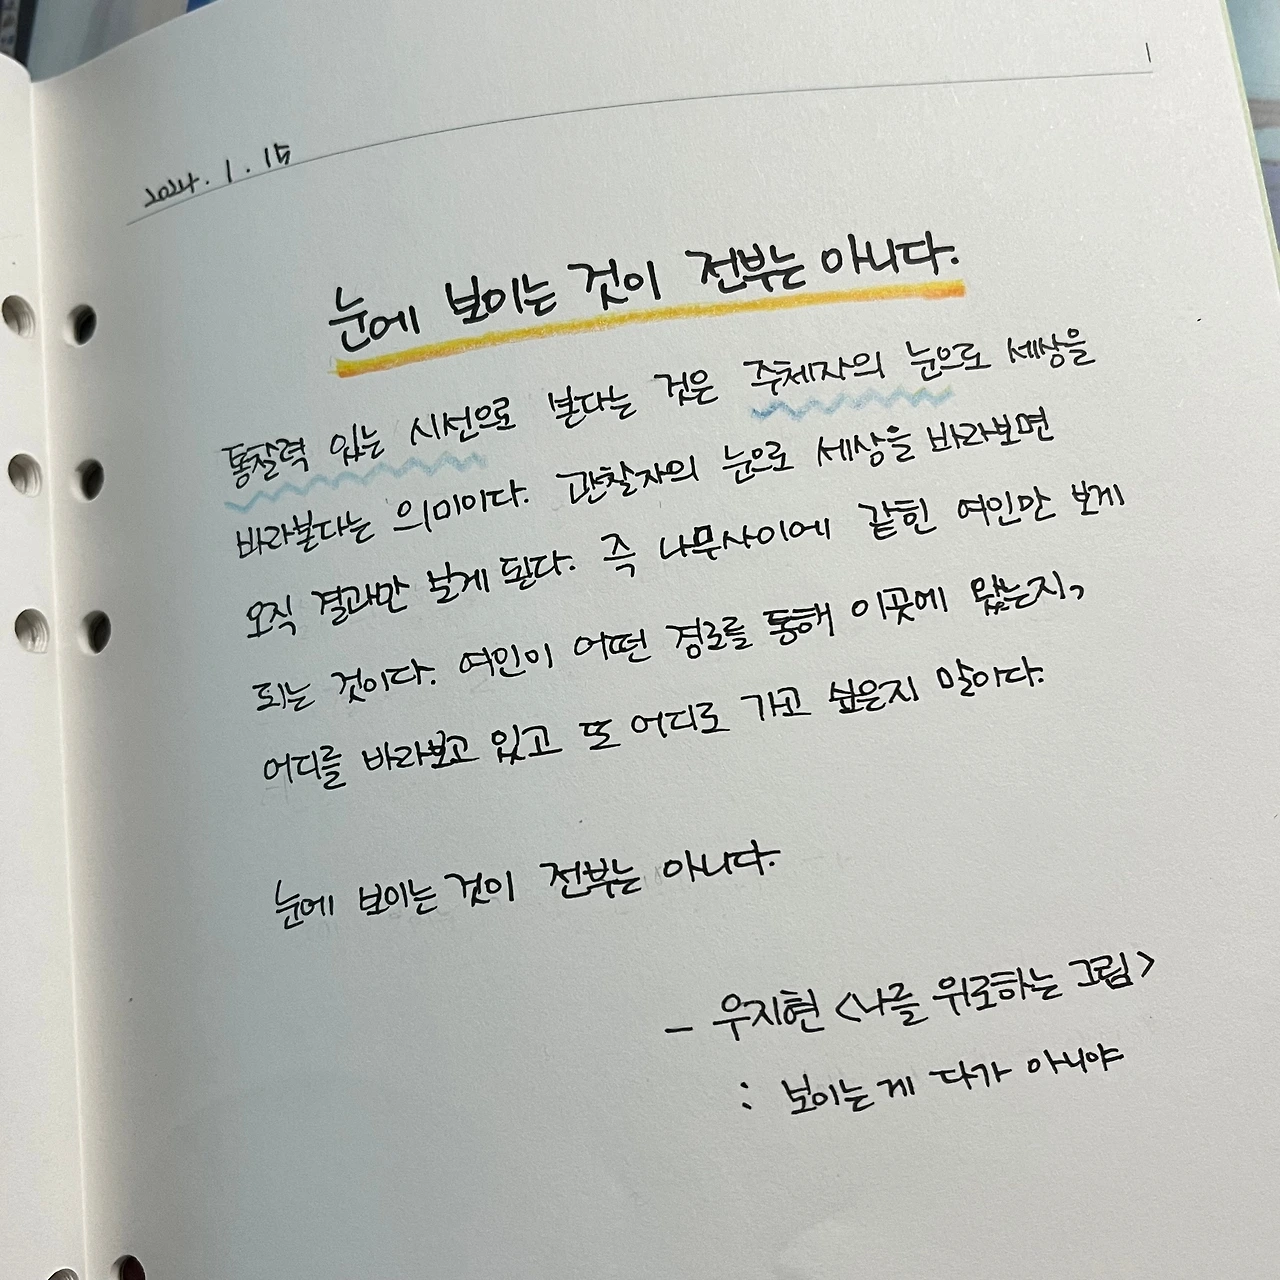 2024. 1. 15
눈에 보이는 것이 전부는 아니다.
통찰력 있는 시선으로 본다는 것은 주체자의 눈으로 세상을
바라본다는 의미이다. 관찰자의 눈으로 세상을 바라보면
오직 결과만 보게 된다. 즉 나무사이에 갇힌 여인만 보게
되는 것이다. 여인이 어떤 경로를 통해 이곳에 왔는지,
어디를 바라보고 있고 또 어디로 가고 싶은지 말이다.
눈에 보이는 것이 전부는 아니다.
- 우지현 <나를 위로하는 그림>
: 보이는 게 다가 아니야